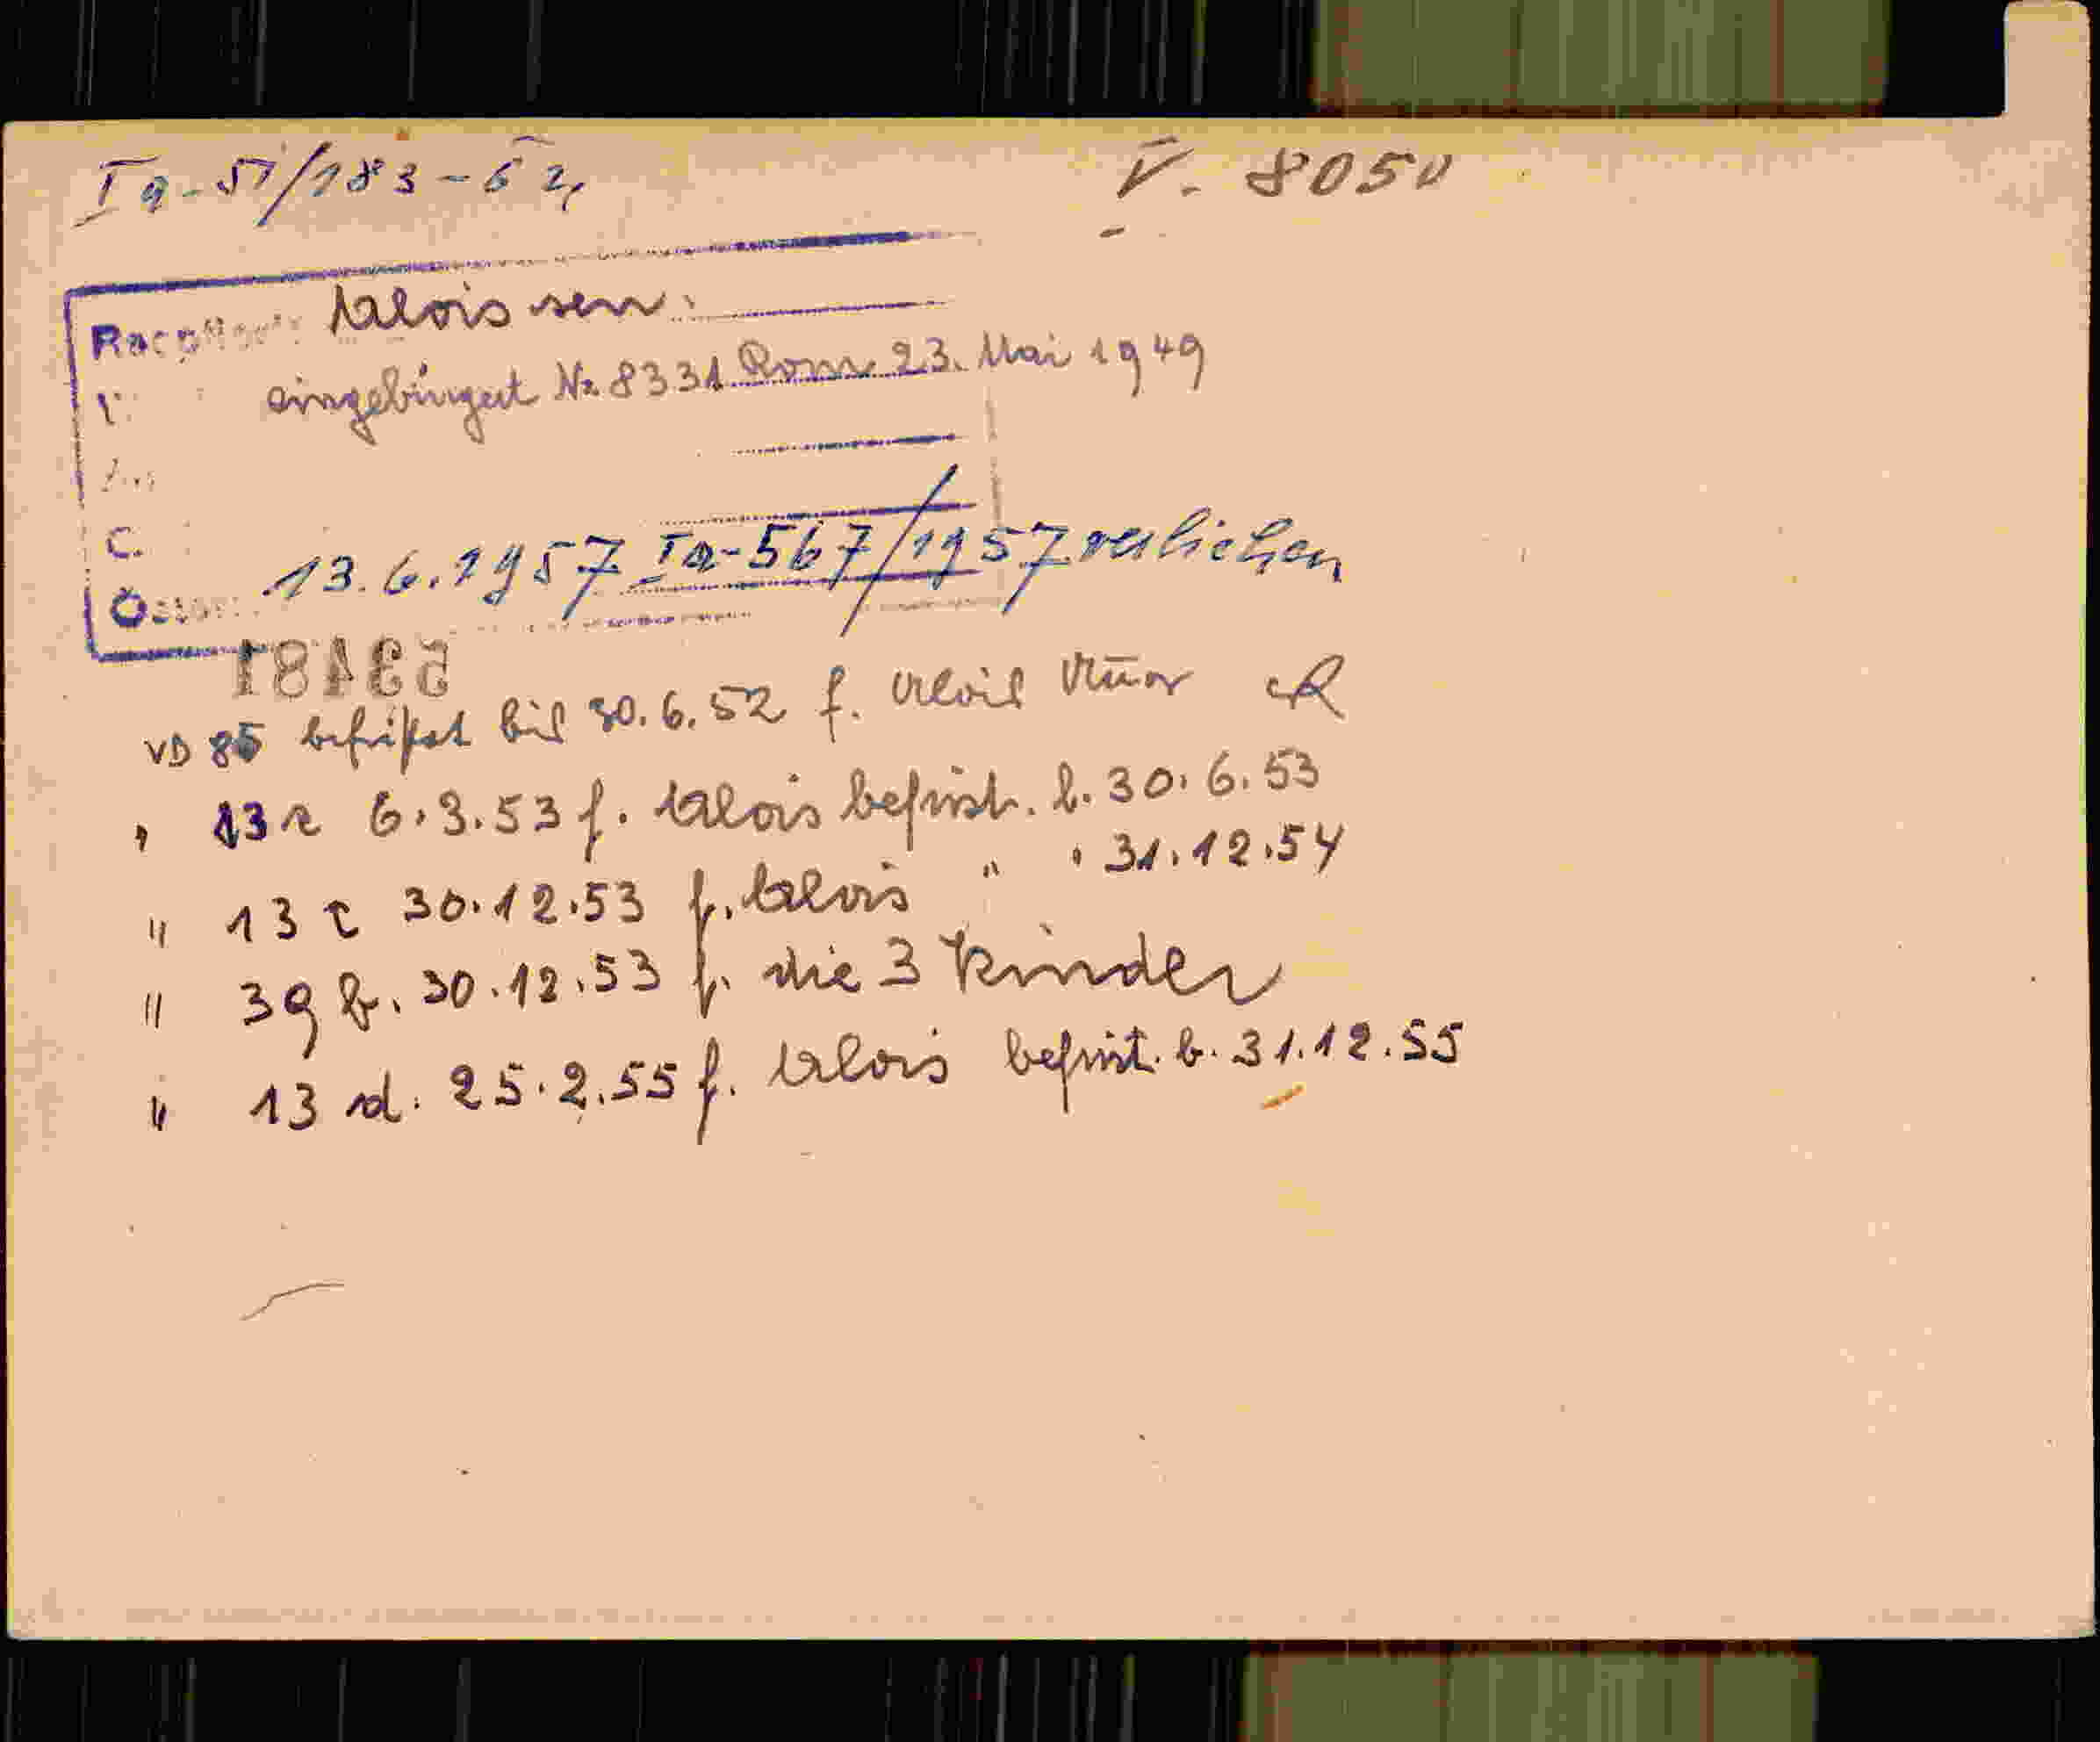 Ia-57/183-52
V. 8050
Alois sen.
eingebürgert Nr. 8331 Rom 23. Mai 1949
C.
13.6.1957 Ia-567/1957 verliehen
53481
VD 85 befristet bis 30.6.52 f. Alois
" 13 r 6.3.53 f. Alois befrist. b. 30.6.53
" 13 c 30.12.53 f. Alois " " 31.12.54
" 39 b. 30.12.53 f. die 3 Kinder
" 13 d. 25.2.55 f. Alois befrist. b. 31.12.55